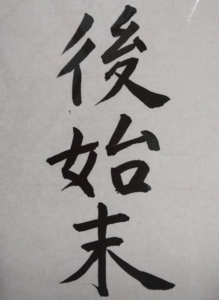 後始末